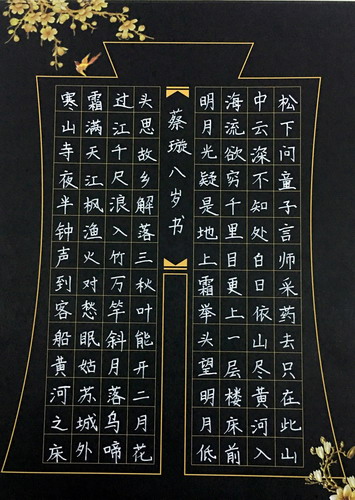 松下问童子言师采药去只在此山
中云深不知处白日依山尽黄河入
海流欲穷千里目更上一层楼床前
明月光疑是地上霜举头望明月低
蔡璇八岁书
头思故乡解落三秋叶能开二月花
过江千尺浪入竹万竿斜月落乌啼
霜满天江枫渔火对愁眠姑苏城外
寒山寺夜半钟声到客船黄河之床